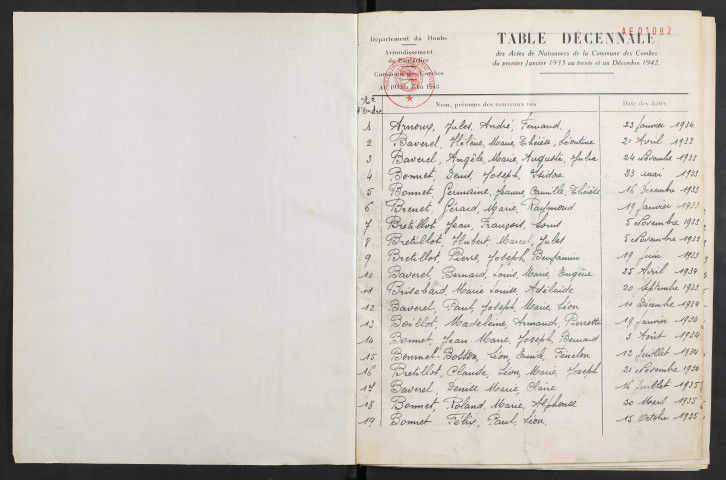 AE01082
Département du Doubs
Arrondissement
de Pontarlier
Commune des Combes
An 1933 à l'An 1943
TABLE DÉCENNALE
des Actes de Naissances de la Commune des Combes
du premier Janvier 1933 au trente et un Décembre 1942.
N° d'Ordre
Nom, prénoms des nouveaux nés
Date des Actes
1 Arnoux, Jules, André, Fernand, 23 Janvier 1934
2 Baverel, Hélène, Marie, Thérèse, Léontine 21 Avril 1933
3 Baverel, Angèle, Marie, Augusta, Julia 24 Novembre 1933
4 Bonnet, Denis, Joseph, Isidore 23 mai 1933
5 Bonnet Germaine, Jeanne, Camille, Thérèse 16 Décembre 1933
6 Brenet, Gérard, Marie, Raymond 19 Janvier 1933
7 Bretillot, Jean, François, Louis 5 Novembre 1933
8 Bretillot, Hubert, Marcel, Jules 5 Novembre 1933
9 Bretillot, Pierre, Joseph, Benjamin 19 Juin 1933
10 Baverel, Bernard, Louis, Marie, Eugène 25 Avril 1934
11 Brischard, Marie Louise, Adélaïde 20 Septembre 1933
12 Baverel, Paul, Joseph, Marie, Léon 11 Décembre 1934
13 Boillot, Madeleine, Armande, Pierrette 19 Janvier 1934
14 Bonnet, Jean-Marie, Joseph, Bernard 3 Août 1934
15 Bonnet-Botton, Léon, Emile, Fénelon 12 Juillet 1934
16 Bretillot, Claude, Léon, Marie, Joseph 21 Novembre 1934
17 Baverel, Denise Marie, Claire 16 Juillet 1935
18 Bonnet, Roland, Marie, Alphonse 30 Mars 1935
19 Bonnet Félix, Paul, Léon, 15 Octobre 1935